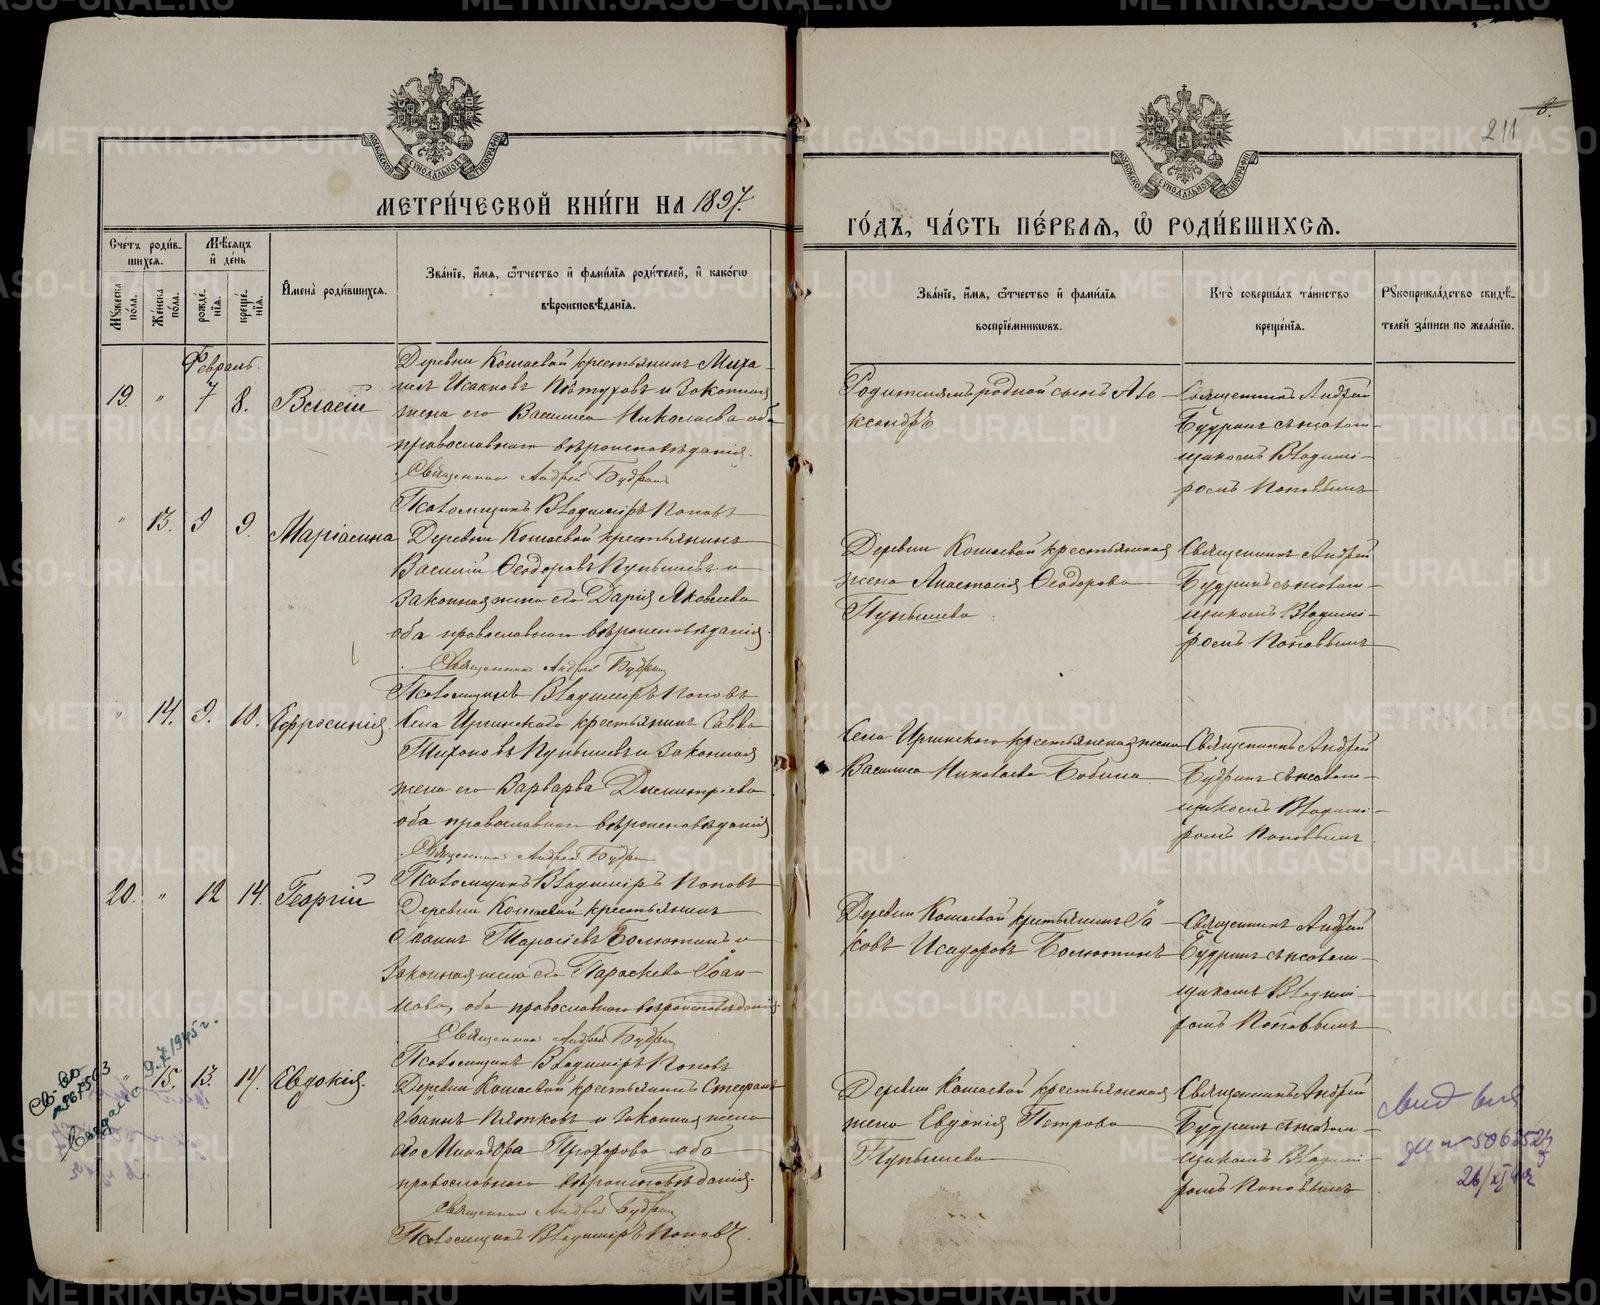 МЕТРИ́ЧЕСКОЙ КНИ́ГИ НА 1897.
ГО́ДЪ, ЧА́СТЬ ПЕ́РВАЯ, Ѡ҆ РОДИ́ВШИХСЯ.
211
МОСКОВСКОЙ СѴНОДАЛЬНОЙ ТИПОГРАФІИ
МОСКОВСКОЙ СѴНОДАЛЬНОЙ ТИПОГРАФІИ
Счетъ роди́в-
шихся.
Мѣсяцъ
и҆ де́нь
Му́жеска по́ла.
Же́нска по́ла.
рожде́-нїя.
креще́-нїя.
И҆мена̀ роди́вшихся.
Зва́нїе, и҆́мя, ѻ҆́тчество и҆ фами́лїя роди́телей, и҆ како́гѡ
вѣроисповѣ́данїя.
Зва́нїе, и҆́мя, ѻ҆́тчество и҆ фами́лїя
воспрїе́мникѡвъ.
Кто̀ соверша́лъ та́инство
креще́нїя.
Рꙋкоприкла́дство свидѣ́-
телей за́писи по жела́нїю.
Февраль.
19. " 7 8. Власій
Деревни Кошаевой крестьянинъ Миха-
илъ Исаковъ Пѣтуховъ и законная
жена его Василиса Николаева оба
православнаго вѣроисповѣданія.
Священникъ Андрей Будринъ
Псаломщикъ Владиміръ Поповъ
Родителямъ родной сынъ Але-
ксандръ
Священникъ Андрей
Будринъ съ псалом-
щикомъ Владимі-
ромъ Поповымъ
" 13. 9 9. Маріамна
Деревни Кошаевой крестьянинъ
Василій Ѳеодоровъ Пупышевъ и
законная жена его Дарія Яковлева
оба православнаго вѣроисповѣданія.
Священникъ Андрей Будринъ
Псаломщикъ Владиміръ Поповъ
Деревни Кошаевой крестьянская
жена Анастасія Ѳеодорова
Пупышева
Священникъ Андрей
Будринъ съ псалом-
щикомъ Владимі-
ромъ Поповымъ
" 14. 9. 10. Ефросинія.
Села Иргинскаго крестьянинъ Савва
Тихоновъ Пупышевъ и законная
жена его Варвара Димитріева
оба православнаго вѣроисповѣданія
Священникъ Андрей Будринъ
Псаломщикъ Владиміръ Поповъ
Села Иргинскаго крестьянская жена
Василиса Николаева Бабина
Священникъ Андрей
Будринъ съ псалом-
щикомъ Владимі-
ромъ Поповымъ
20. " 12 14. Георгій
Деревни Кошаевой крестьянинъ
Тарасіевъ и
законная жена его Параскева Іоан-
нова, оба православнаго вѣроисповѣданія
Священникъ Андрей Будринъ
Псаломщикъ Владиміръ Поповъ
Деревни Кошаевой крестьянинъ Іа-
ковъ Исидоровъ
Священникъ Андрей
Будринъ съ псалом-
щикомъ Владимі-
ромъ Поповымъ
" 15. 13. 14. Евдокія.
Деревни Кошаевой крестьянинъ Стефанъ
Іоаннъ Пятковъ и законная жена
его Минодора Прохорова оба
православнаго вѣроисповѣданія.
Священникъ Андрей Будринъ
Псаломщикъ Владиміръ Поповъ.
Деревни Кошаевой крестьянская
жена Евдокія Петрова
Пупышева
Священникъ Андрей
Будринъ съ псалом-
щикомъ Владимі-
ромъ Поповымъ
Св-во
Выдано 9.X 1945 г.
METRIKI.GASO-URAL.RU